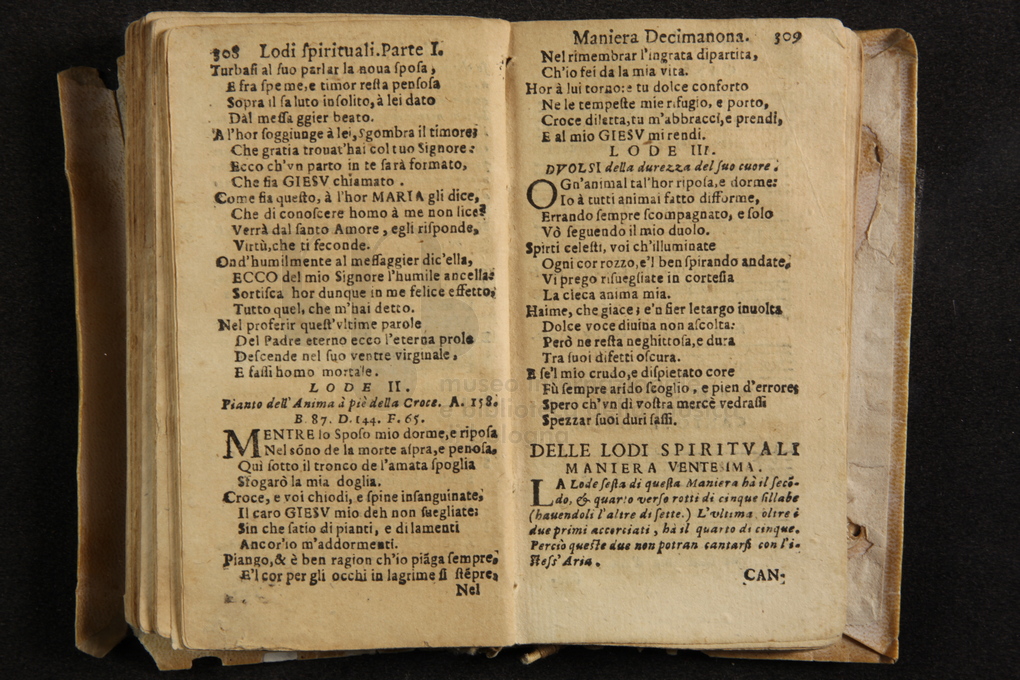 308 Lodi ſpirituali. Parte I.
Turbaſi al ſuo parlar la noua ſpoſa,
E fra ſpeme, e timor reſta penſoſa
Sopra il ſaluto inſolito, à lei dato
Dal meſſaggier beato.
A l'hor ſoggiunge à lei, Sgombra il timore;
Che gratia trouat'hai col tuo Signore:
Ecco ch'vn parto in te ſarà formato,
Che ſia GIESV chiamato.
Come ſia queſto, à l'hor MARIA gli dice,
Che di conoſcere homo à me non lice?
Verrà dal ſanto Amore, egli riſponde,
Virtù, che ti feconde.
Ond'humilmente al meſſaggier dic'ella,
ECCO del mio Signore l'humile ancella:
Sortiſca hor dunque in me felice effetto,
Tutto quel, che m'hai detto.
Nel proferir queſt'vltime parole
Del Padre eterno ecco l'eterna prole
Deſcende nel ſuo ventre virginale,
E faſſi homo mortale.
LODE II.
Pianto dell'Anima à piè della Croce. A. 158.
B. 87. D. 144. F. 65.
MENTRE lo Spoſo mio dorme, e ripoſa
Nel sõno de la morte aſpra, e penoſa,
Qui ſotto il tronco de l'amata ſpoglia
Sfogarò la mia doglia.
Croce, e voi chiodi, e ſpine inſanguinate,
Il caro GIESV mio deh non ſuegliate:
Sin che ſatio di pianti, e di lamenti
Ancor'io m'addormenti.
Piango, & è ben ragion ch'io piãga ſempre,
E'l cor per gli occhi in lagrime ſi ſtẽpre,
Nel
Maniera Decimanona. 309
Nel rimembrar l'ingrata dipartita,
Ch'io fei da la mia vita.
Hor à lui torno: e tu dolce conforto
Ne le tempeſte mie rifugio, e porto,
Croce diletta, tu m'abbracci, e prendi,
E al mio GIESV mi rendi.
LODE III.
DVOLSI della durezza del ſuo cuore.
OGn'animal tal'hor ripoſa, e dorme:
Io à tutti animai fatto difforme,
Errando ſempre ſcompagnato, e ſolo
Vò ſeguendo il mio duolo.
Spirti celeſti, voi ch'illuminate
Ogni cor rozzo, e'l ben ſpirando andate,
Vi prego riſuegliate in corteſia
La cieca anima mia.
Haime, che giace; e'n fier letargo inuolta
Dolce voce diuina non aſcolta:
Però ne reſta neghittoſa, e dura
Tra ſuoi difetti oſcura.
E ſe'l mio crudo, e diſpietato core
Fù ſempre arido ſcoglio, e pien d'errore;
Spero ch'vn dì voſtra mercè vedraſſi
Spezzar ſuoi duri ſaſſi.
DELLE LODI SPIRITVALI
MANIERA VENTESIMA.
LA Lode ſeſta di queſta Maniera hà il ſecõ-
do, & quarto verſo rotti di cinque ſillabe
(hauendoli l'altre di ſette.) L'vltima, oltre i
due primi accorciati, hà il quarto di cinque.
Perciò queſte due non potran cantarſi con l'i-
ſteſs'Aria.
CAN-